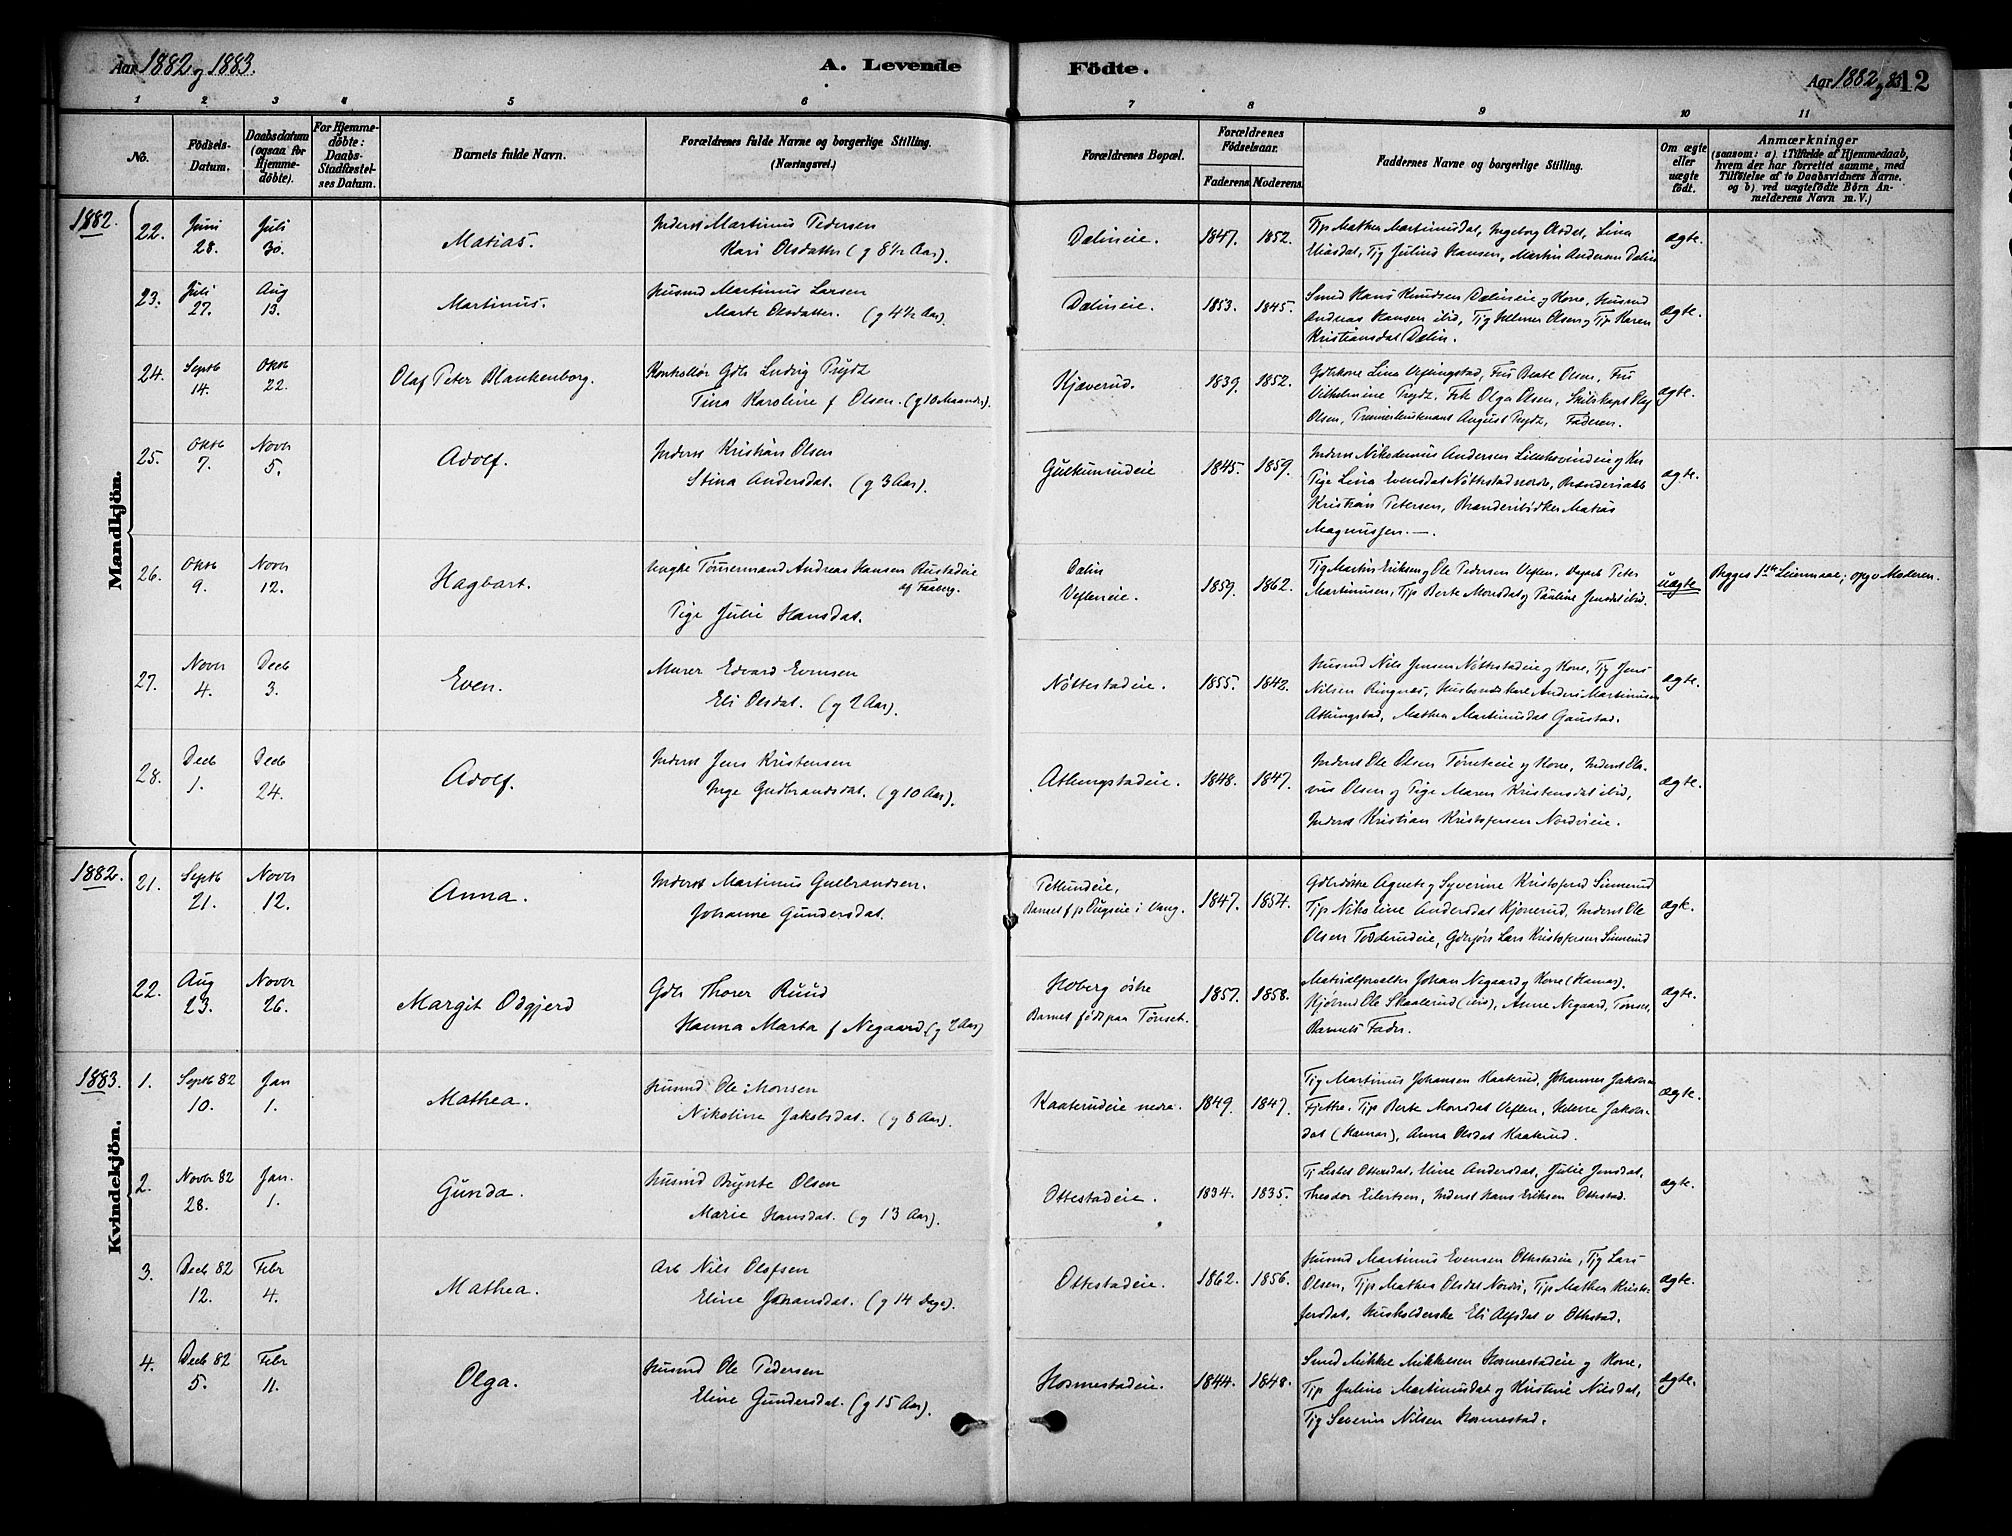 Aar 1882 og 1883.
A. Levende Födte.
Aar 1882 og 83. 12
1 2 3 4 5 6 7 8 9 10 11
No.
Födsels-Datum.
Daabsdatum (ogsaa for Hjemme-döbte).
For Hjemme-döbte: Daabs-Stadfæstel-ses Datum.
Barnets fulde Navn.
Forældrenes fulde Navne og borgerlige Stilling. (Næringsvei.)
Forældrenes Bopæl.
Forældrenes Födselsaar.
Faderens. Moderens.
Faddernes Navne og borgerlige Stilling.
Om ægte eller uægte födt.
Anmærkninger
(saasom: a) i Tilfælde af Hjemmedaab, hvem der har forrettet samme, med Tilföielse af to Daabsvidners Navne, og b) ved uægtefödte Börn An-melderens Navn m. V.)
Mandkjön.
1882.
22. Juni 28. Juli 30. Matias.
Inderst Martinus Pedersen
Kari Olsdatter (g 8½ Aar).
Dælineie. 1847. 1852.
Tip Mathea Martinusdat, Ingeborg Olsdat, Lina
Olsdat, Tig Julius Hansen, Martin Andersen Dælin
ægte.
23. Juli 27. Aug 13. Martinus.
Husmd Martinus Larsen
Marte Olsdatter. (g 4½ Aar).
Dælineie. 1853. 1845.
Smed Hans Knudsen Dælineie og Kone, Husmd
Andreas Hansen ibid, Tig Helmer Olsen og Tip Karen
Kristiansdat Dælin.
ægte.
24. Septb 14. Oktb 22. Olaf Peter Blankenborg.
Kontrollør Gdb Ludvig Prydz
Tina Karoline f Olsen. (g 10 Maander).
Kjæverud. 1839. 1852.
Gdbkone Lina Veflingstad, Fru Beate Olsen, Fru
Vilhelmine Prydz, Frk Olga Olsen, Skibskapt Olaf
Olsen, Premierlieutenant August Prydz, Faderen.
ægte.
25. Oktb 7. Novb 5. Adolf.
Inderst Kristian Olsen
Stina Andersdat. (g 3 Aar).
Gulkunsudeie 1845. 1859.
Inderst Nikodemus Andersen Lillehovindeie og Kn
Pige Lina Evensdat Nöttestad nordre, Brænderiarb
Kristian Petersen, Brænderibödker Matias
Magnussen. —.
ægte.
26. Oktb 9. Novb 12. Hagbart.
Ungkr Tömmermand Andreas Hansen Rustadeie af Faaberg.
Pige Julie Hansdat.
Dælin
Vefleneie. 1859. 1862.
Tig Martin Eriksen og Ole Pedersen Veflen, Peter
Martinusen, Tip Berte Monsdat og Pauline Jensdat ibid.
uægte
Begges 1ste Leiermaal; opg v Moderen.
27. Novb 4. Decb 3. Even.
Murer Edvard Evensen
Eli Olsdat. (g 2 Aar).
Nöttestadeie. 1855. 1842.
Husmd Nils Jensen Nöttestadeie og Kone, Tig Jens
Nilsen Ringnæs, Anders Martinusen
Athungstad, Mathea Martinusdat Gaustad.
ægte.
28. Decb 1. Decb 24. Adolf.
Inderst Jens Kristensen
Inge Gudbrandsdat. (g 10 Aar).
Athungstadeie. 1848. 1847.
Inderst Ole Olsen og Kone, Inderst Ola-
vus Olsen og Pige Maren Kristensdat ibid,
Inderst Kristian Kristofersen Nordvieie.
ægte.
Kvindekjön.
1882.
21. Septb 21. Novb 12. Anna.
Inderst Martinus Gulbrandsen.
Johanne Gundersdat.
Barnet f p i Vang. 1847. 1854.
Gdbdöttre Agnete og Syverine Kristofersd Sinnerud
Tip Nikoline Andersdat Kjonerud, Inderst Ole
Olsen Todderudeie, Lars Kristofersen Sinnerud
ægte.
22. Aug 23. Novb 26. Margit Odgjerd
Gdb Thorer Ruud
Hanna Marta f Negaard. (g 2 Aar)
Hoberg östre
Barnet födt paa Tönset. 1857. 1858.
Materialforvalter Johan Negaard og Kone (Hamar).
Kjöbmd Ole Skaalerud, Anne Negaard, Tönset,
Barnets Fader.
ægte.
1883.
1. Septb 82 10. Jan 1. Mathea.
Husmd Ole Monsen
Nikoline Jakobsdat. (g 8 Aar).
Kaaterudeie nedre. 1849. 1847.
Tig Martinus Johansen Kaaterud, Johannes Jakobsen
Fjetre. Tip Berte Monsdat Veflen, Helene Jakobs-
dat (Hamar), Anna Olsdat Kaaterud.
ægte.
2. Novb 82 28. Jan. 1. Gunda.
Husmd Brynte Olsen
Marie Hansdat. (g 13 Aar).
Ottestadeie. 1834. 1835.
Tj Lisbet Ottersdat, Oline Andersdat, Julie Jensdat,
Theodor Eilertsen, Inderst Hans Eriksen Ottestad.
ægte.
3. Decb 82 12. Febr 4. Mathea.
Arb Nils Olafsen
Eline Johansdat. (g 14 Dage).
Ottestadeie. 1862. 1856.
Husmd Martinus Evensen Ottestadeie, Tig Lars
Olsen, Tip Mathea Olsdat Nordvi, Tip Mathea Kristo-
fersdat, Husholderske Eli Alfsdat v Ottestad.
ægte.
4. Decb 82 5. Febr 11. Olga.
Husmd Ole Pedersen
Eline Gundersdat. (g 15 Aar).
Hosmestadeie. 1844. 1848.
Smed Mikkel Mikkelsen Hosmestadeie og Kone,
Tip Juline Martinusdat og Kristine Nilsdat,
Tig Severin Nilsen Hosmestad.
ægte.